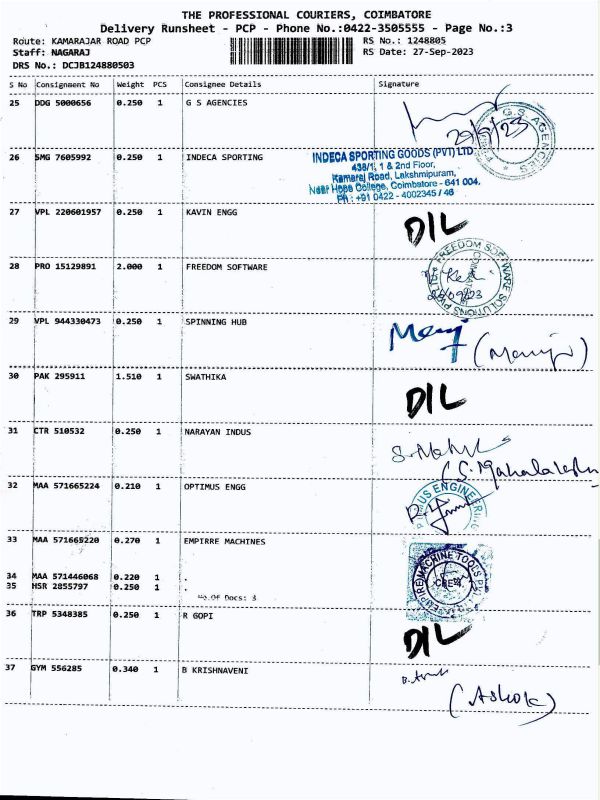 THE PROFESSIONAL COURIERS, COIMBATORE
Delivery Runsheet - PCP - Phone No.:0422-3505555 - Page No.:3
Route: KAMARAJAR ROAD PCP
RS No.: 1248805
Staff: NAGARAJ
RS Date: 27-Sep-2023
DRS No.: DCJB124880503
S No Consignment No Weight PCS Consignee Details Signature
25 DDG 5000656 0.250 1 G S AGENCIES
G.S. AGENCIES
26 SMG 7605992 0.250 1 INDECA SPORTING
INDECA SPORTING GOODS (PVT) LTD
438/1, 1 & 2nd Floor,
Kamaraj Road, Lakshmipuram,
Near Hope College, Coimbatore - 641 004.
Ph : +91 0422 - 4002345 / 46
27 VPL 220601957 0.250 1 KAVIN ENGG
D/L
28 PRO 15129891 2.000 1 FREEDOM SOFTWARE
FREEDOM SOFTWARE SOLUTIONS
29 VPL 944330473 0.250 1 SPINNING HUB
30 PAK 295911 1.510 1 SWATHIKA
D/L
31 CTR 510532 0.250 1 NARAYAN INDUS
32 MAA 571665224 0.210 1 OPTIMUS ENGG
ENGINEERING
33 MAA 571665220 0.270 1 EMPIRRE MACHINES
EMPIRE MACHINE TOOLS
CBE
34 MAA 571446068 0.220 1 .
35 HSR 2855797 0.250 1 .
No.Of Docs: 3
36 TRP 5348385 0.250 1 R GOPI
D/L
37 GYM 556285 0.340 1 B KRISHNAVENI
(Ashok)